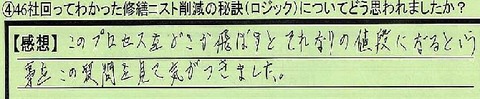 ④46社回ってわかった修繕コスト削減の秘訣(ロジック)についてどう思われましたか?
【感想】このプロセスをどこか飛ばすとそれなりの値段になるという
事をこの質問を見て気がつきました。